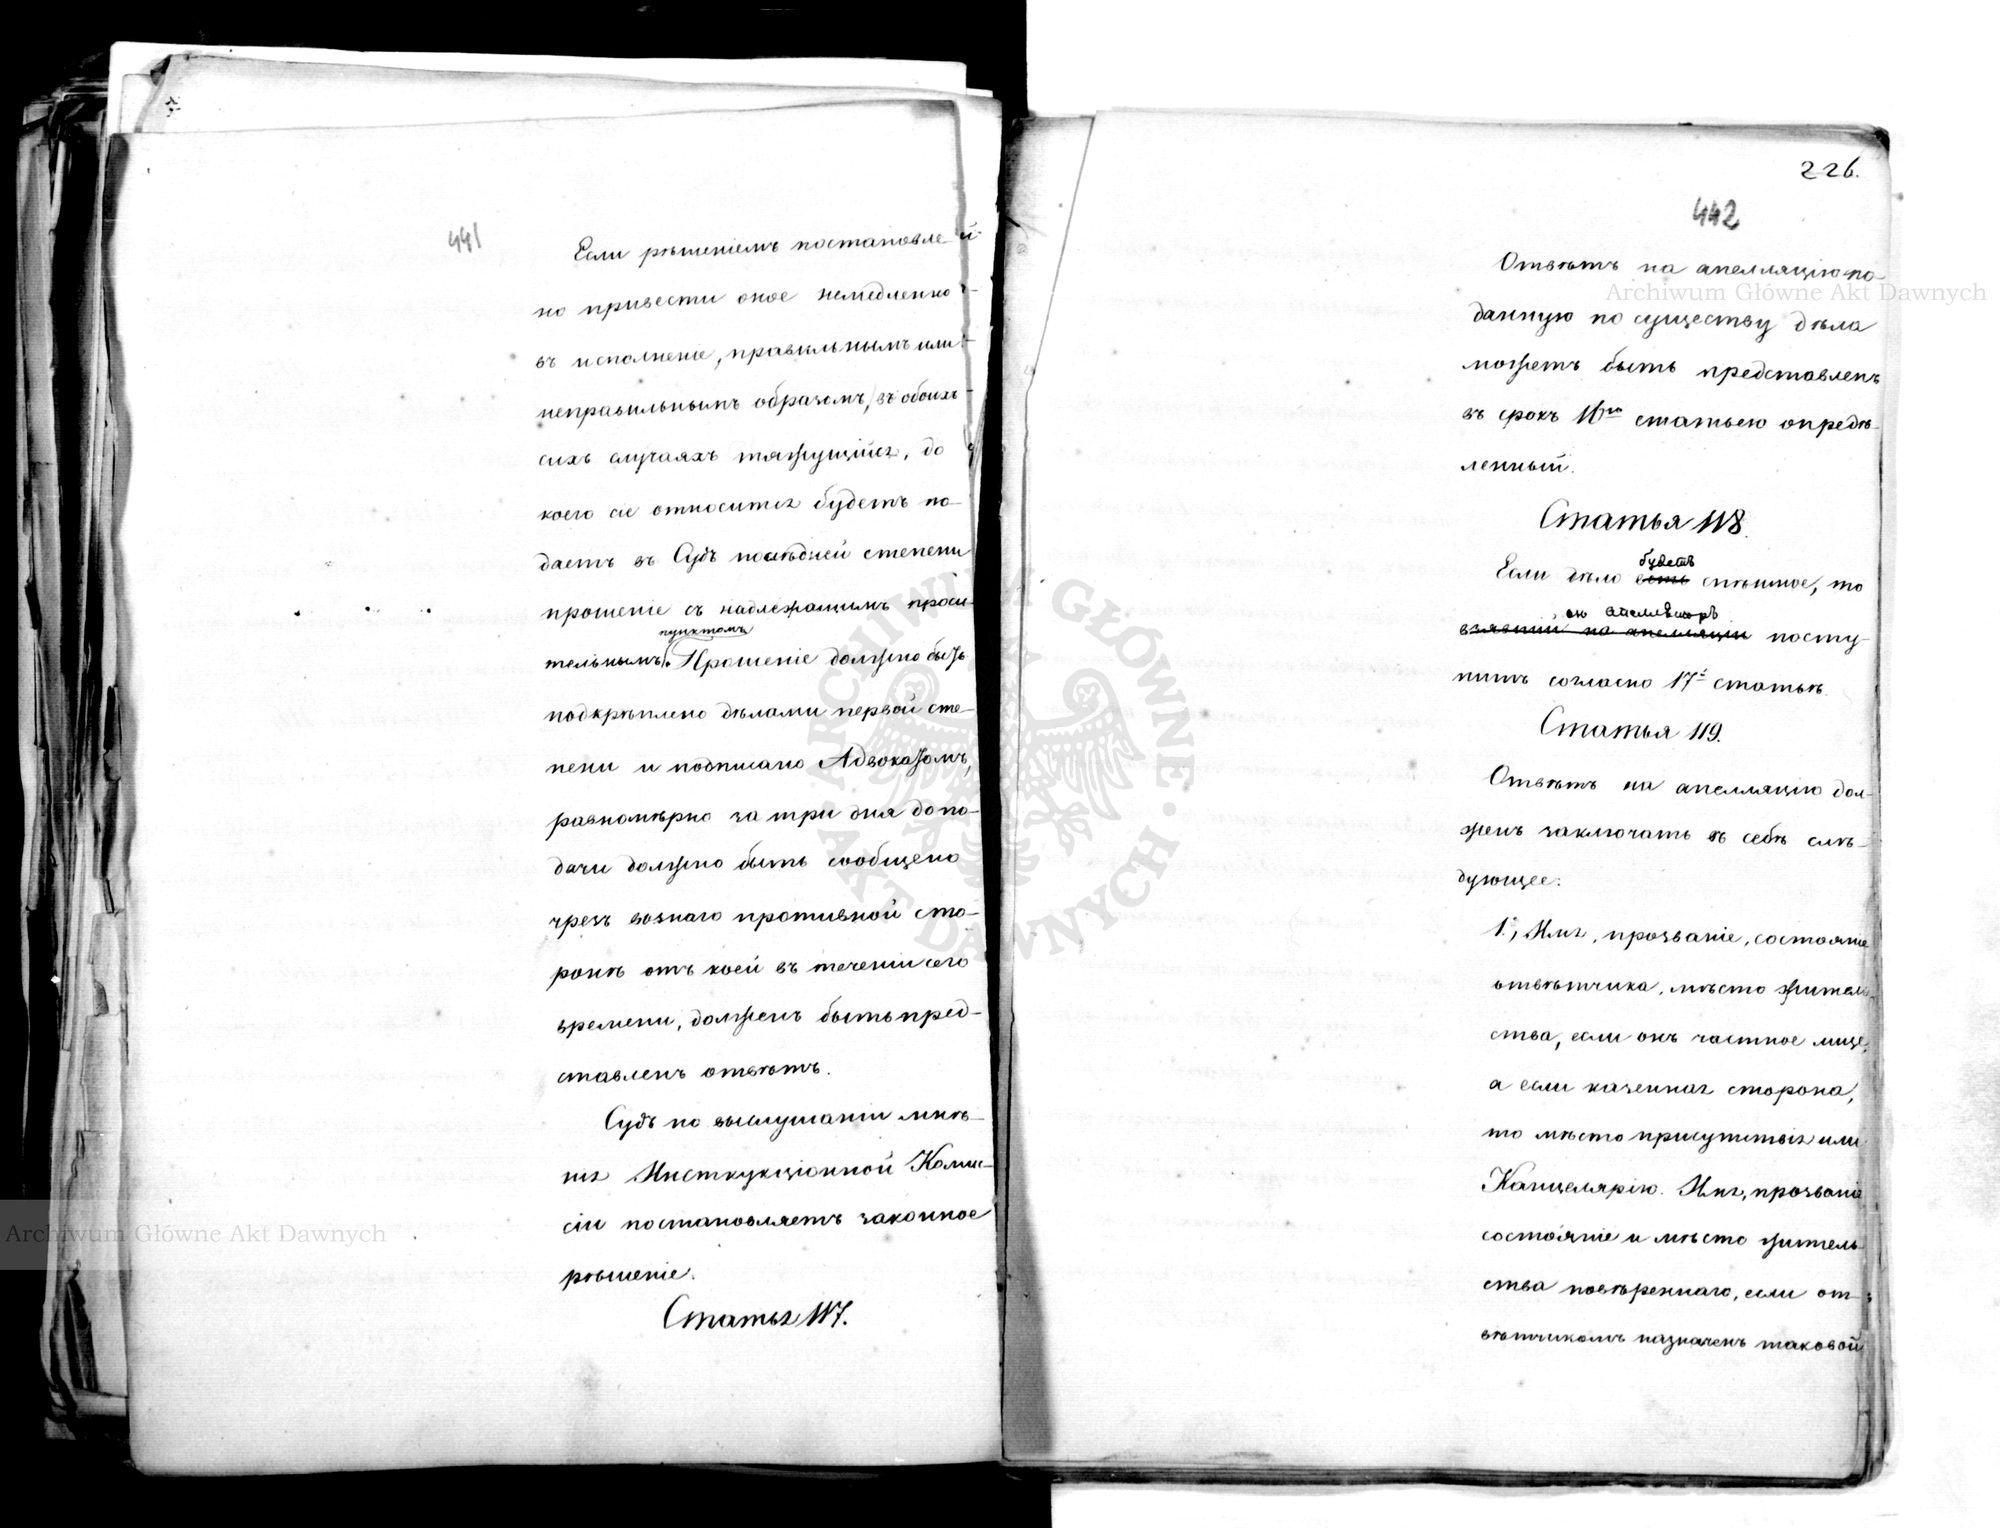 441
Если рѣшеніемъ постановле-
но привести оное немедленно
въ исполненіе, правильнымъ или
неправильнымъ образомъ, въ обоихъ
сихъ случаяхъ тяжущійся, до
коего сіе относится будетъ по-
даетъ въ Судъ послѣдней степени
прошеніе съ надлежащимъ проси-
пунктомъ
тельнымъ. Прошеніе должно быть
подкрѣплено дѣлами первой сте-
пени и подписано Адвокатомъ,
равномѣрно за три дня до по-
дачи должно быть сообщено
чрезъ вознаго противной сто-
ронѣ отъ коей въ теченіи сего
времени, долженъ быть пред-
ставленъ отвѣтъ.
Судъ по выслушаніи мнѣ-
нія Инструкціонной Комми-
сіи постановляетъ законное
рѣшеніе.
Статья 117.
226.
442
Отвѣтъ на апелляцію по-
данную по существу дѣла
можетъ быть представленъ
въ срокъ 16ю статьею опредѣ-
ленный.
Статья 118.
будетъ
Если дѣло есть спѣшное, то
съ апелляторъ
взявшій на апелляціи посту-
питъ согласно 17й статьѣ.
Статья 119.
Отвѣтъ на апелляцію дол-
женъ заключать въ себѣ слѣ-
дующее:
1е, Имя, прозваніе, состояніе
отвѣтчика, мѣсто житель-
ства, если онъ частное лице,
а если казенная сторона,
то мѣсто присутствія или
Канцелярію. Имя, прозваніе
состояніе и мѣсто житель-
ства повѣреннаго, если от-
вѣтчикомъ назначенъ таковой
Archiwum Główne Akt Dawnych
Archiwum Główne Akt Dawnych
ARCHIWUM GŁÓWNE · AKT DAWNYCH ·